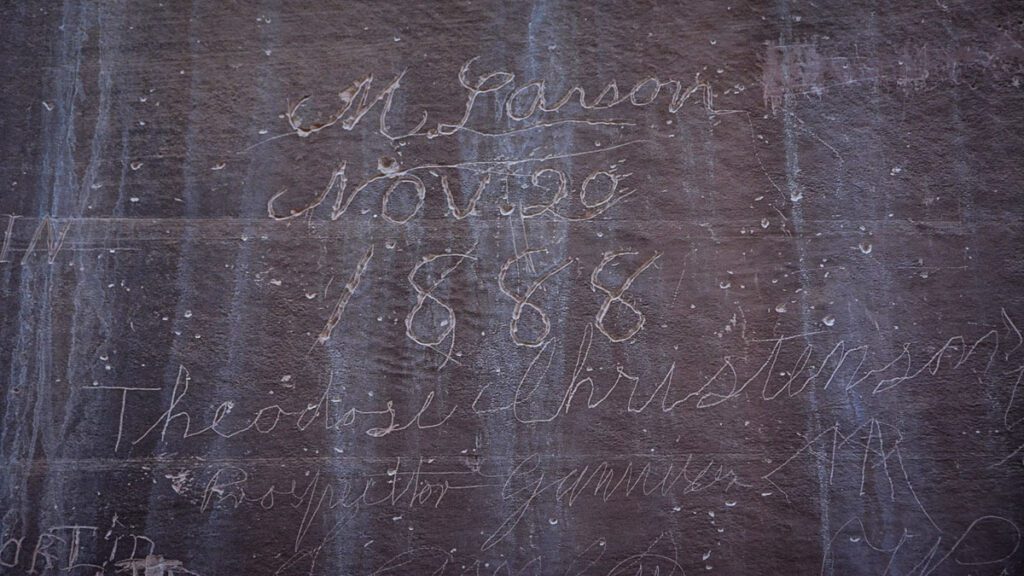 M Larson
Nov. 20
IN
1888
Theodose Christenson
Prospector Gunnison
ORTIN